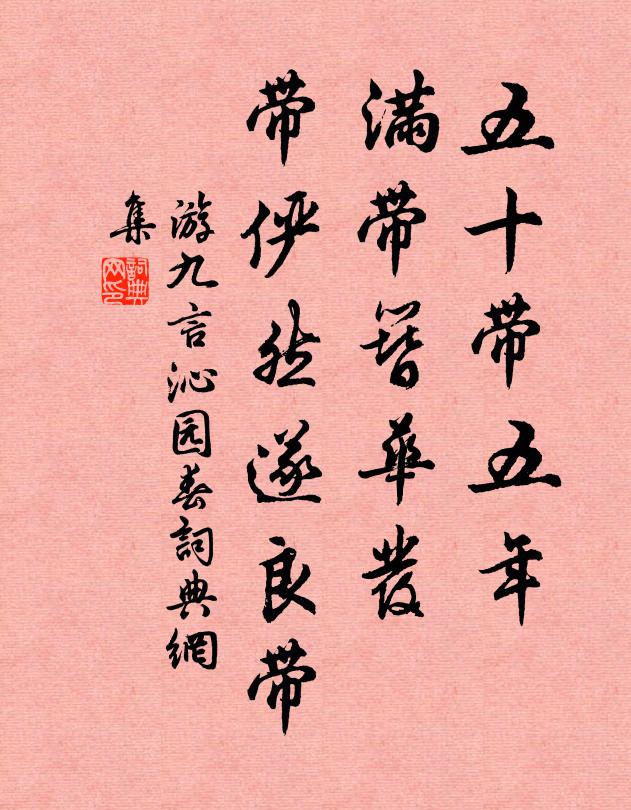 五十带五年
满带簪華發
带俨然遂良带
游九言沁园春詞典網
集
詞典网印